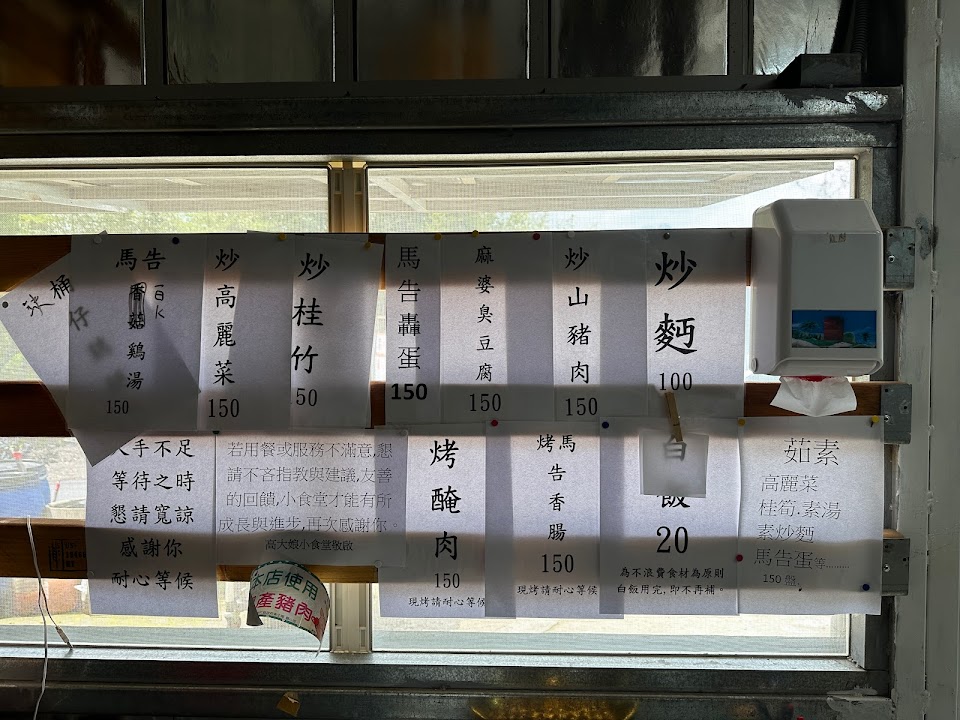 桶
仔
馬告
香菇
雞湯
150
炒高麗菜
150
炒桂竹
50
馬告轟蛋
150
麻婆臭豆腐
150
炒山豬肉
150
炒麵
100
手不足
等待之時
懇請寬諒
感謝你
耐心等候
若用餐或服務不滿意,懇
請不吝指教與建議,友善
的回饋,小食堂才能有所
成長與進步,再次感謝你。
高大娘小食堂敬啟
本店使用
產豬肉
烤醃肉
150
現烤請耐心等候
烤馬告香腸
150
現烤請耐心等候
白飯
20
為不浪費食材為原則
白飯用完,即不再補。
茹素
高麗菜
桂筍.素湯
素炒麵
馬告蛋等........
150盤.